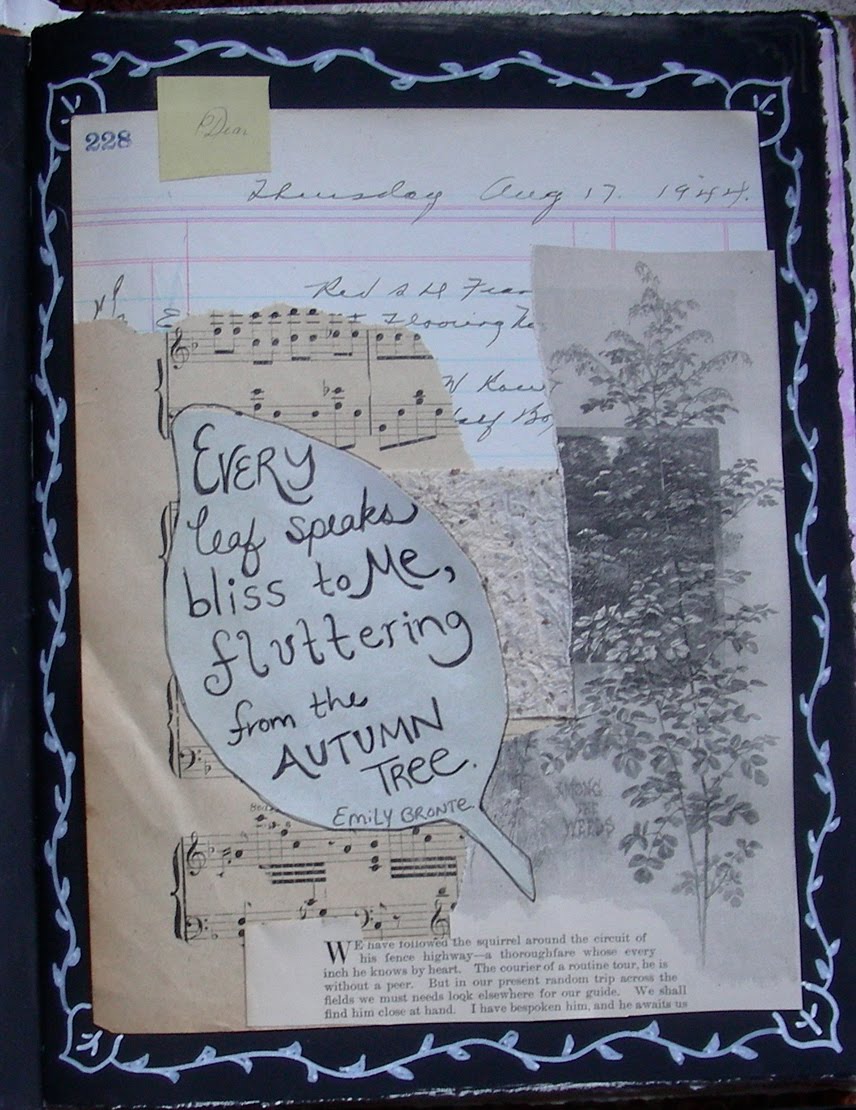 228
Dear
Thursday Aug 17. 1944.
Red
Flooring
EVERY
leaf speaks
bliss to Me,
fluttering
from the
AUTUMN
TREE.
EMILY BRONTE.
AMONG
THE
WEEDS
WE have followed the squirrel around the circuit of
his fence highway—a thoroughfare whose every
inch he knows by heart. The courier of a routine tour, he is
without a peer. But in our present random trip across the
fields we must needs look elsewhere for our guide. We shall
find him close at hand. I have bespoken him, and he awaits us